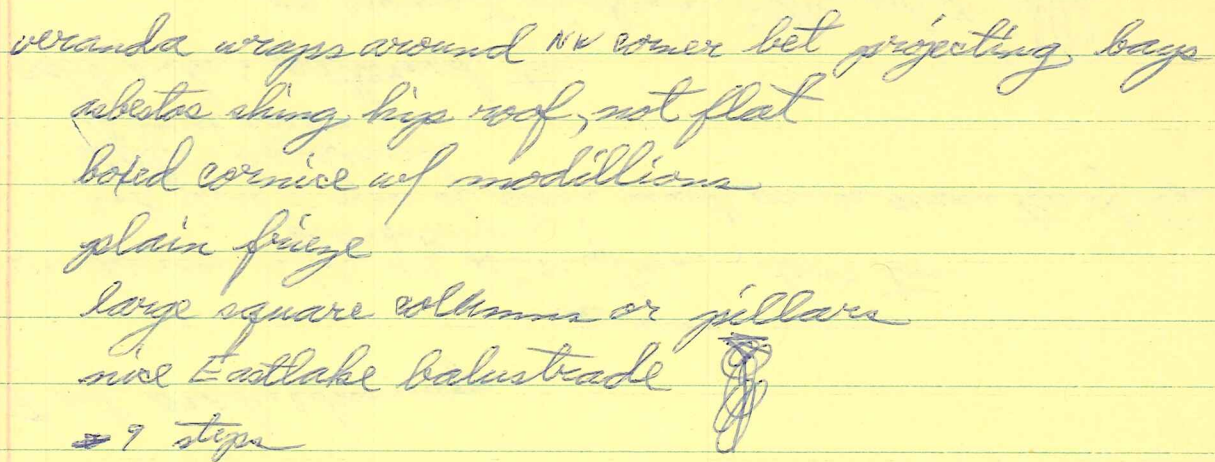 veranda wraps around NW corner bet projecting bays
asbestos shing hip roof, not flat
boxed cornice w/ modillions
plain frieze
large square columns or pillars
nice Eastlake balustrade
9 steps